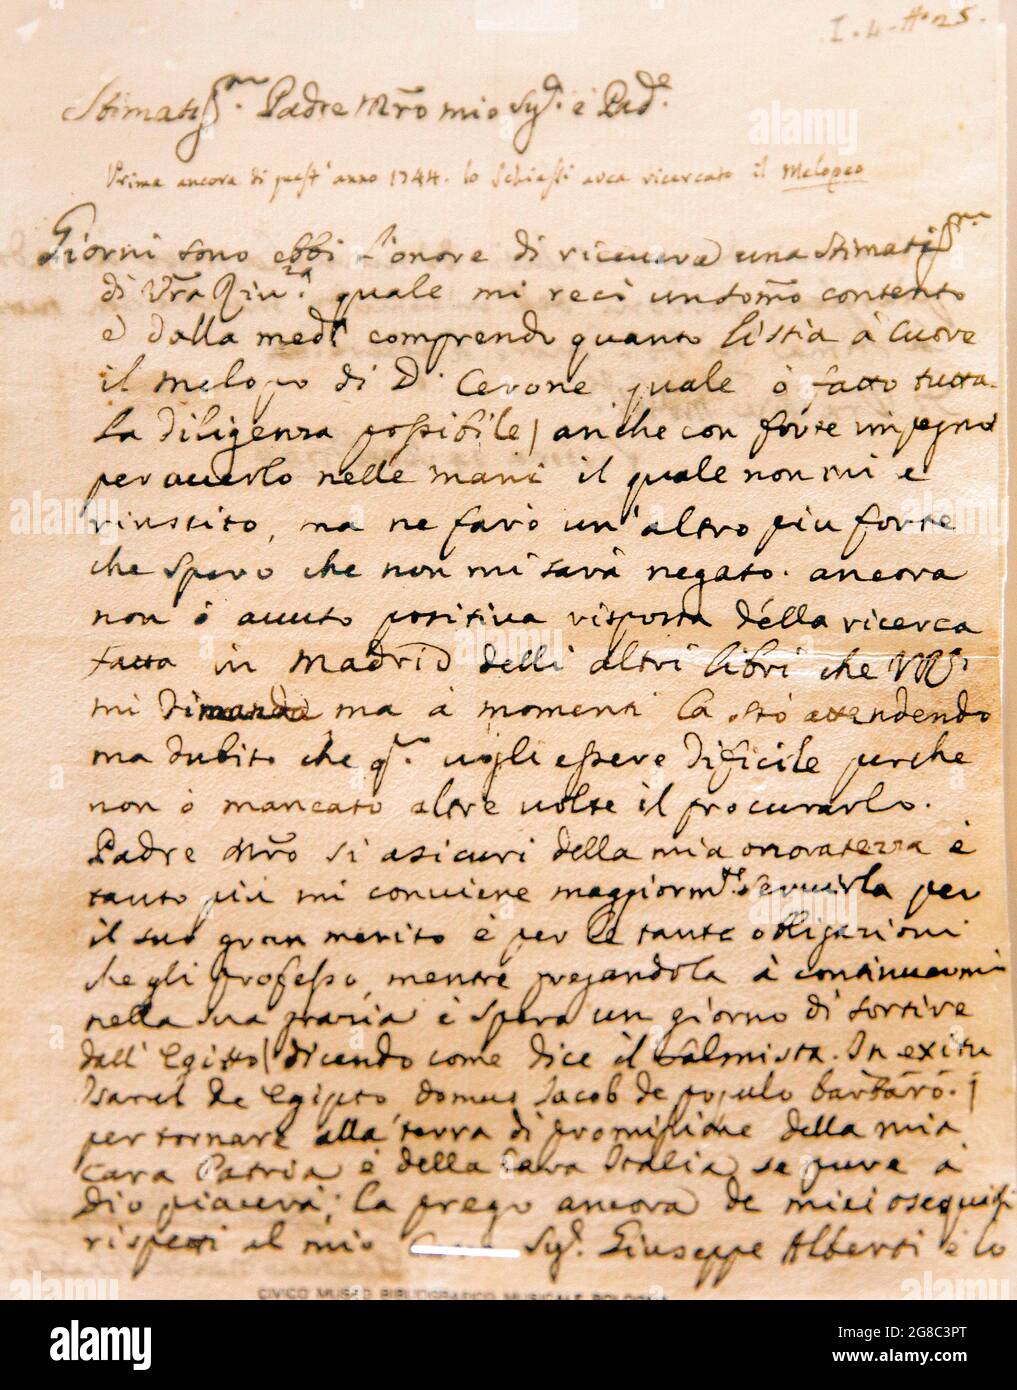 I. 4. H. 25.
Stimatis.mo Padre Mro mio Sig.e è Pad.e
Prima ancora di quest'anno 1744. lo Schiassi avea ricercato il Melopeo
Giorni sono ebbi l'onore di ricevere una Stimatis.ma
di Vra Riv.za quale mi recò un somo contento
è dalla med.ma comprendo quanto li stia à cuore
il melopeo di D. Cerone quale ò fatto tutta
la diligenza possibile / anche con forte impegni
per averlo nelle mani il quale non mi è
riussito, ma ne farò un'altro piu forte
che spero che non mi sarà negato. ancora
non ò avuto positiva risposta della ricerca
fatta in Madrid delli altri libri che VR.
mi dimanda ma à momenti la stò attendendo
ma dubito che q. vogli essere dificile perche
non ò mancato altre volte il procurarlo.
Padre Mro si asicuri della mia onoratezza è
tanto più mi conviene maggiorm.te servirla per
il suo gran merito è per le tante obligazioni
che gli professo, mentre pregandola à continuarmi
nella sua grazia è spero un giorno di sortire
dall'Egitto / dicendo come dice il salmista. In exitu
Israel de Egipto domus Jacob de populo barbaro. /
per tornare alla terra di promissione della mia
cara Patria è della cara Italia, se pure à
Dio piacerà; la prego ancora de miei osequissi
rispetti al mio Sig. Giuseppe Alberti è lo
CIVICO MUSEO BIBLIOGRAFICO MUSICALE BOLOGNA
alamy
alamy
Image ID: 2G8C3PT
www.alamy.com